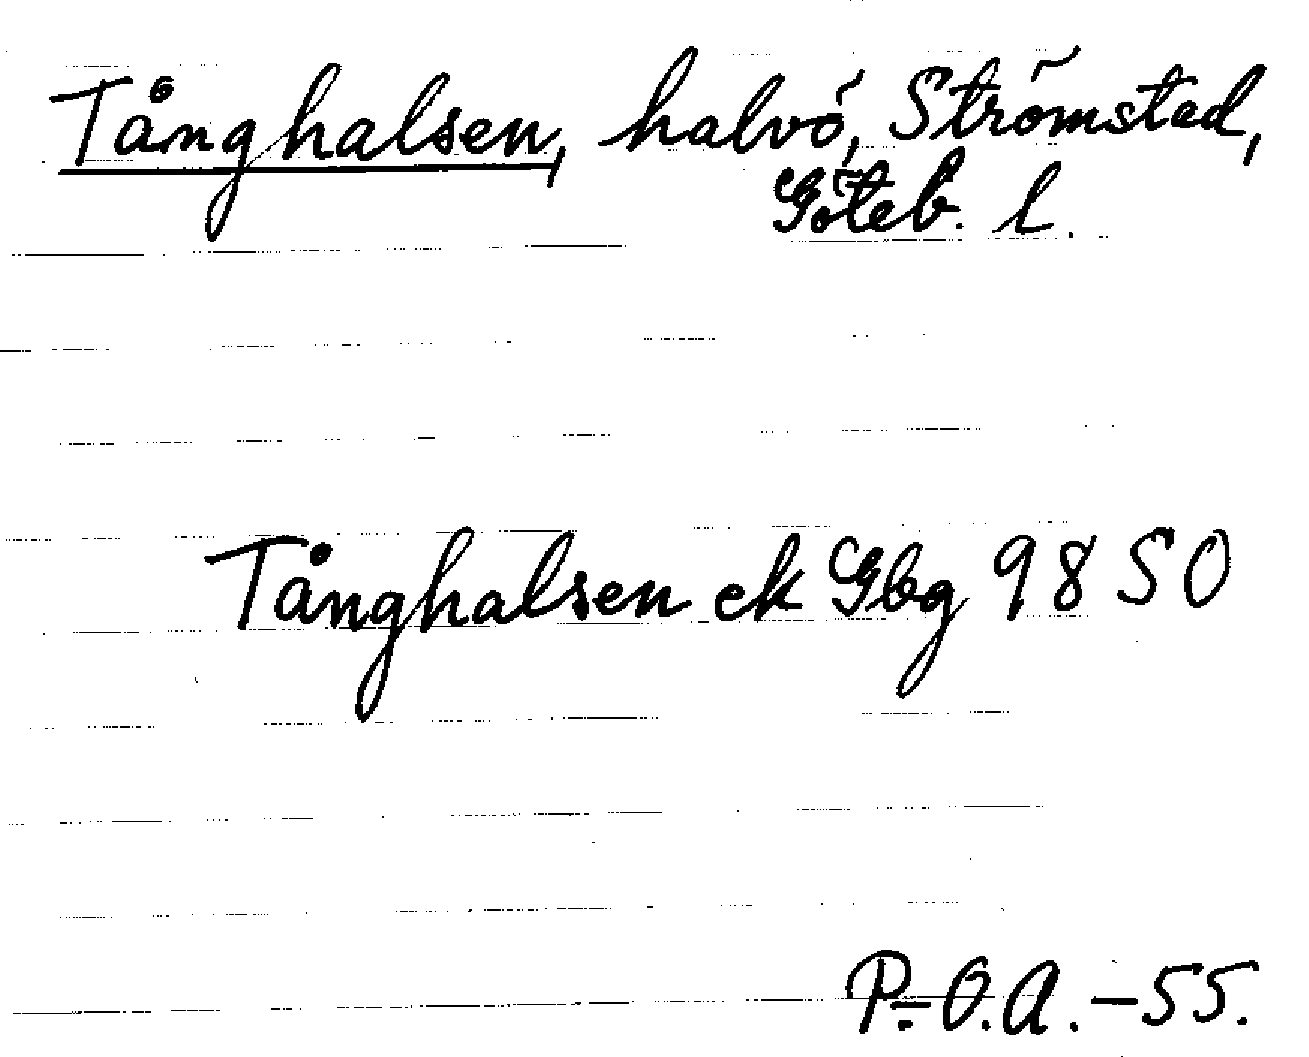 Tånghalsen, halvö, Strömstad,
Göteb. l.
Tånghalsen ek Gbg 98 SO
P.-O.A.-55.